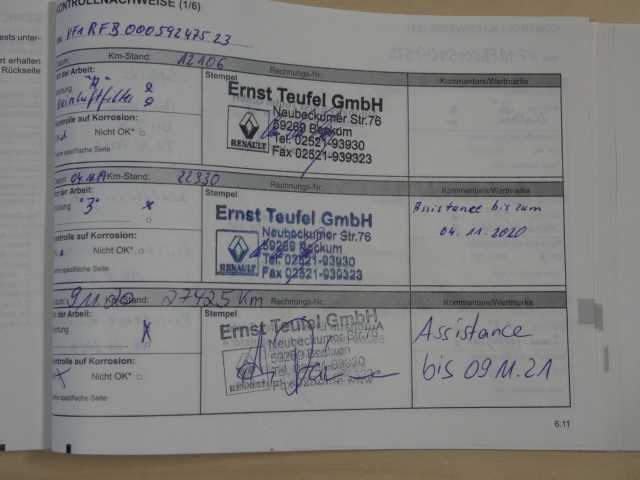 CONTROLLNACHWEISE (1/6)
VF1RFB00059247523
Km-Stand: 12106 Rechnungs-Nr.: Kommentare/Wertmarke
Stempel
Ernst Teufel GmbH
Neubeckumer Str.76
59269 Beckum
Tel. 02521-93930
Fax 02521-939323
RENAULT
der Arbeit: "A"
Reinluftfilter
auf Korrosion:
Nicht OK*
spezifische Seite
04.11.19 Km-Stand: 22930 Rechnungs-Nr.: Kommentare/Wertmarke
Stempel
Ernst Teufel GmbH
Neubeckumer Str.76
59269 Beckum
Tel. 02521-93930
Fax 02521-939323
RENAULT
der Arbeit:
"3" x
ntrolle auf Korrosion:
Nicht OK*
spezifische Seite
Assistance bis zum
04.11.2020
9.11.20 Stand: 27425 Km Rechnungs-Nr.: Kommentare/Wertmarke
Stempel
Ernst Teufel GmbH
59269 Beckum
der Arbeit:
x
ntrolle auf Korrosion:
x Nicht OK*
spezifische Seite
Assistance
bis 09.11.21
6.11
ests unter-
rt erhalten
Rückseite